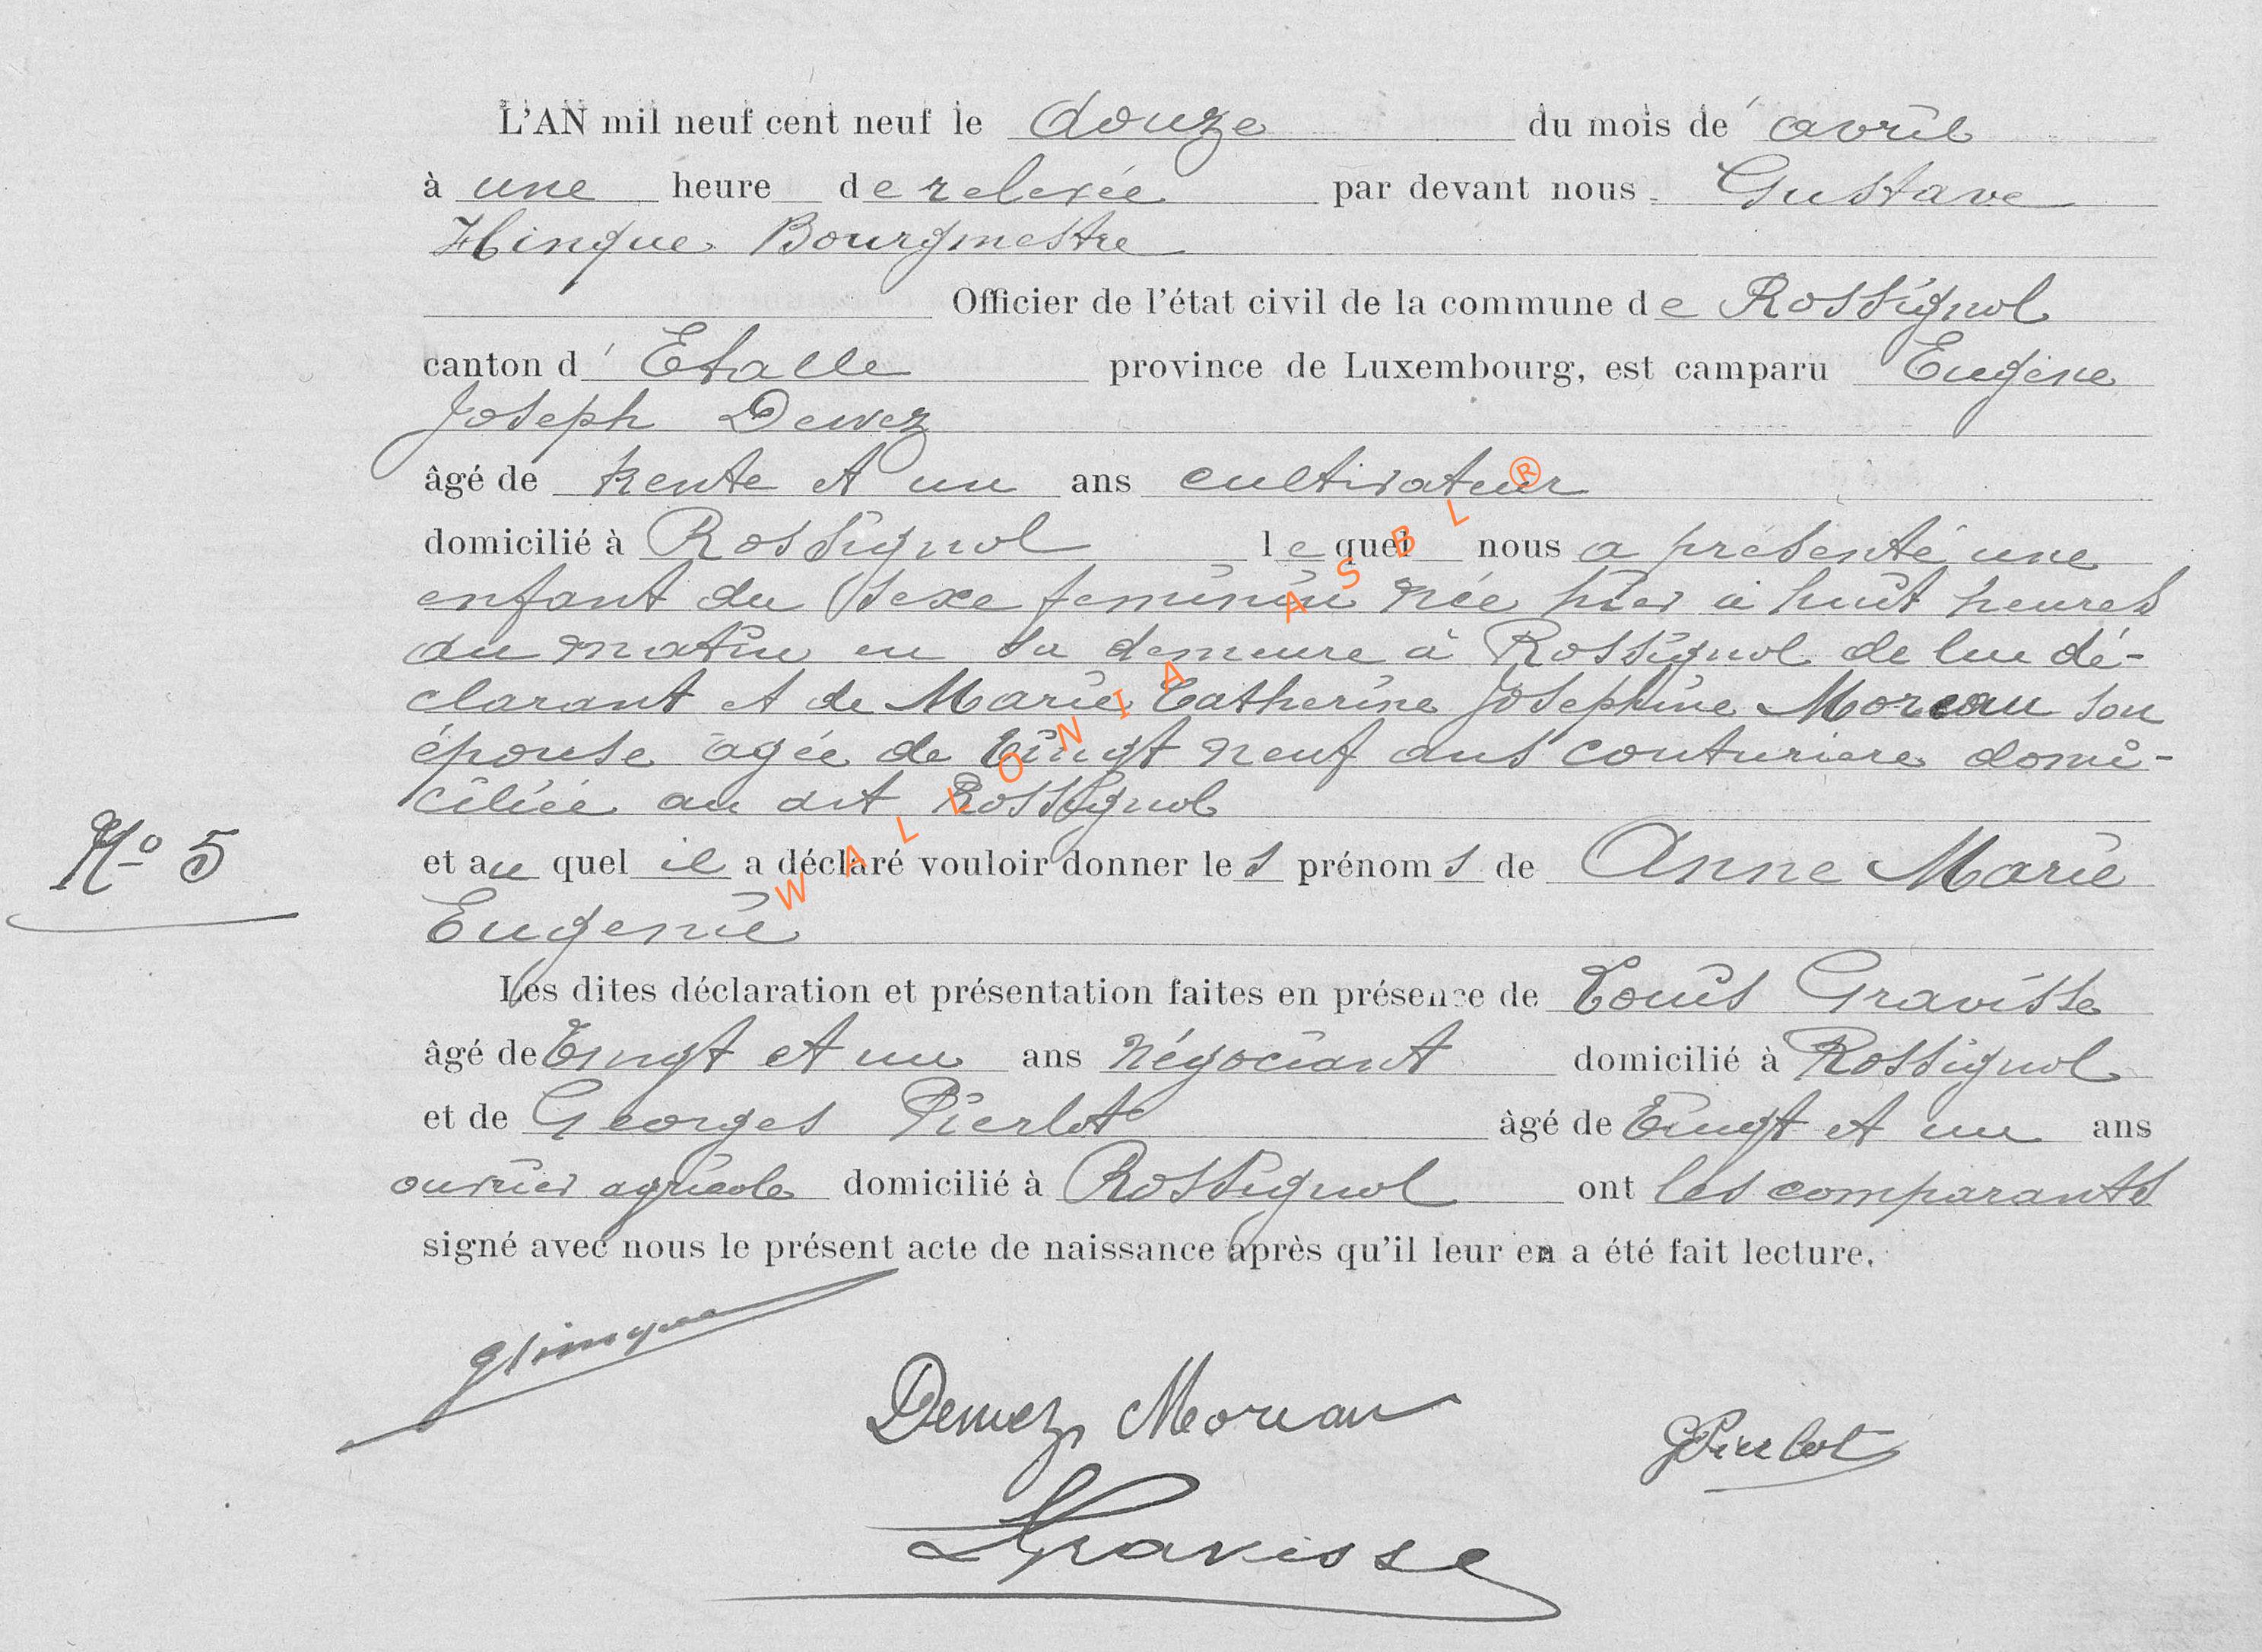 L'AN mil neuf cent neuf le douze du mois de avril
à une heure de relevée par devant nous Gustave
Hinque Bourgmestre
Officier de l'état civil de la commune de Rossignol
canton d' Etalle province de Luxembourg, est camparu Eugène
Joseph Dewez
âgé de trente et un ans cultivateur
domicilié à Rossignol le quel nous a présenté une
enfant du sexe feminin née hier à huit heures
du matin en sa demeure à Rossignol de lui dé-
clarant et de Marie Catherine Josephine Moreau son
épouse agée de vingt neuf ans couturiere domi-
ciliée au dit Rossignol
N° 5
et au quel il a déclaré vouloir donner les prénoms de Anne Marie
Eugenie
Les dites déclaration et présentation faites en présence de Louis Gravisse
âgé de vingt et un ans négociant domicilié à Rossignol
et de Georges Pierlot âgé de vingt et un ans
ouvrier agricole domicilié à Rossignol ont les comparants
signé avec nous le présent acte de naissance après qu'il leur en a été fait lecture.
GHinque
Dewez Moreau
GPierlot
LGravisse
WALLONIA ASBL ®